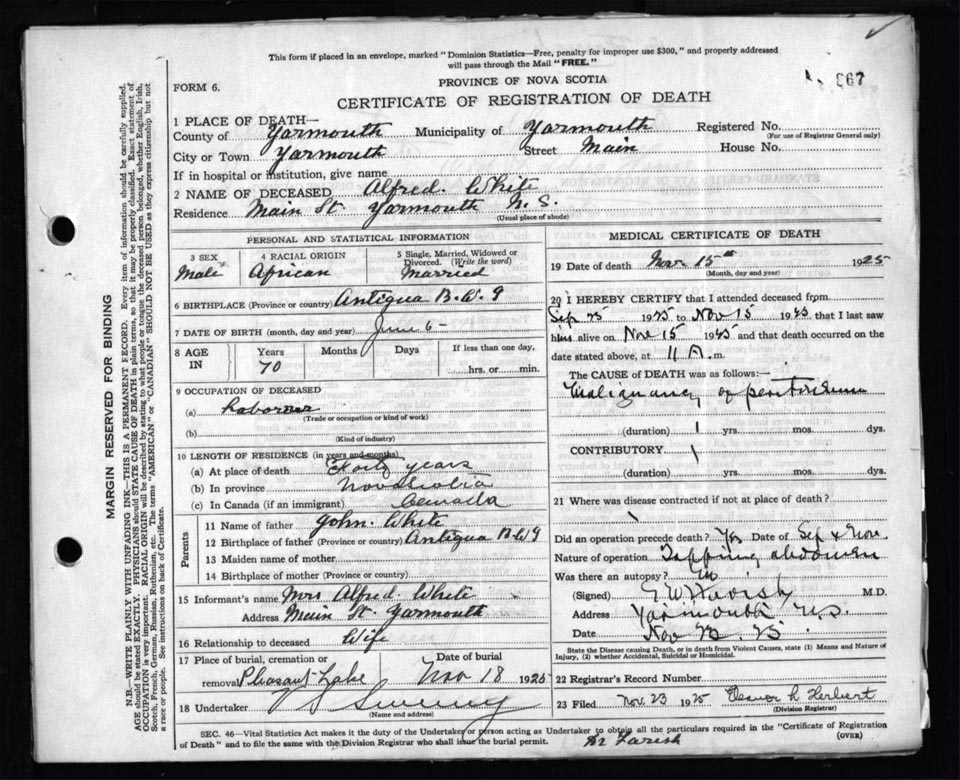 This form if placed in an envelope, marked "Dominion Statistics—Free, penalty for improper use $300," and properly addressed
will pass through the Mail "FREE."
967
PROVINCE OF NOVA SCOTIA
FORM 6.
CERTIFICATE OF REGISTRATION OF DEATH
1 PLACE OF DEATH—
County of Yarmouth Municipality of Yarmouth Registered No.
(For use of Registrar General only)
City or Town Yarmouth Street Main House No.
If in hospital or institution, give name
2 NAME OF DECEASED Alfred. White
Residence Main St Yarmouth N. S.
(Usual place of abode)
PERSONAL AND STATISTICAL INFORMATION
3 SEX 4 RACIAL ORIGIN 5 Single, Married, Widowed or
Divorced. (Write the word)
Male African Married
6 BIRTHPLACE (Province or country) Antigua B.W.I
7 DATE OF BIRTH (month, day and year) June 6-
8 AGE IN Years Months Days If less than one day,
70 hrs. or min.
9 OCCUPATION OF DECEASED
(a) Laborer
(Trade or occupation or kind of work)
(b)
(Kind of industry)
10 LENGTH OF RESIDENCE (in years and months)
(a) At place of death years
(b) In province Nova Scotia
(c) In Canada (if an immigrant) Canada
Parents
11 Name of father John. White
12 Birthplace of father (Province or country) Antigua B.W.I
13 Maiden name of mother
14 Birthplace of mother (Province or country)
15 Informant's name Mrs Alfred. White
Address Main St. Yarmouth
16 Relationship to deceased Wife
17 Place of burial, cremation or Date of burial
removal Pleasant Lake Nov 18 1925
18 Undertaker Sweeny
(Name and address)
MEDICAL CERTIFICATE OF DEATH
19 Date of death Nov. 15th 1925
(Month, day and year)
20 I HEREBY CERTIFY that I attended deceased from
Sep 25 1925 to Nov 15 1925 that I last saw
him alive on Nov 15 1925 and that death occurred on the
date stated above, at 11 A. m.
The CAUSE of DEATH was as follows:—
Malignancy of peritoneum
(duration) 1 yrs. mos. dys.
CONTRIBUTORY.
(duration) yrs. mos. dys.
21 Where was disease contracted if not at place of death?
Did an operation precede death? Yes Date of Sep & Nov.
Nature of operation Tapping abdomen
Was there an autopsy? no
(Signed) Farish M.D.
Address Yarmouth N.S.
Date Nov 25
State the Disease causing Death, or in death from Violent Causes, state (1) Means and Nature of
Injury, (2) whether Accidental, Suicidal or Homicidal.
22 Registrar's Record Number
23 Filed Nov. 23 1925 Eleanor L Herbert
(Division Registrar)
SEC. 46—Vital Statistics Act makes it the duty of the Undertaker or person acting as Undertaker to obtain all the particulars required in the "Certificate of Registration
of Death" and to file the same with the Division Registrar who shall issue the burial permit. Dr Farish (OVER)
MARGIN RESERVED FOR BINDING
N.B.—WRITE PLAINLY WITH UNFADING INK—THIS IS A PERMANENT RECORD. Every item of information should be carefully supplied.
AGE should be stated EXACTLY. PHYSICIANS should STATE CAUSE OF DEATH in plain terms, so that it may be properly classified. Exact statement of
OCCUPATION is very important. RACIAL ORIGIN will be described by stating to what people or tongue the deceased person belonged, whether English, Irish,
Scotch, French, German, Russian, Ruthenian, etc. The terms "AMERICAN" or "CANADIAN" SHOULD NOT BE USED as they express citizenship but not
a race or people. See instructions on back of Certificate.